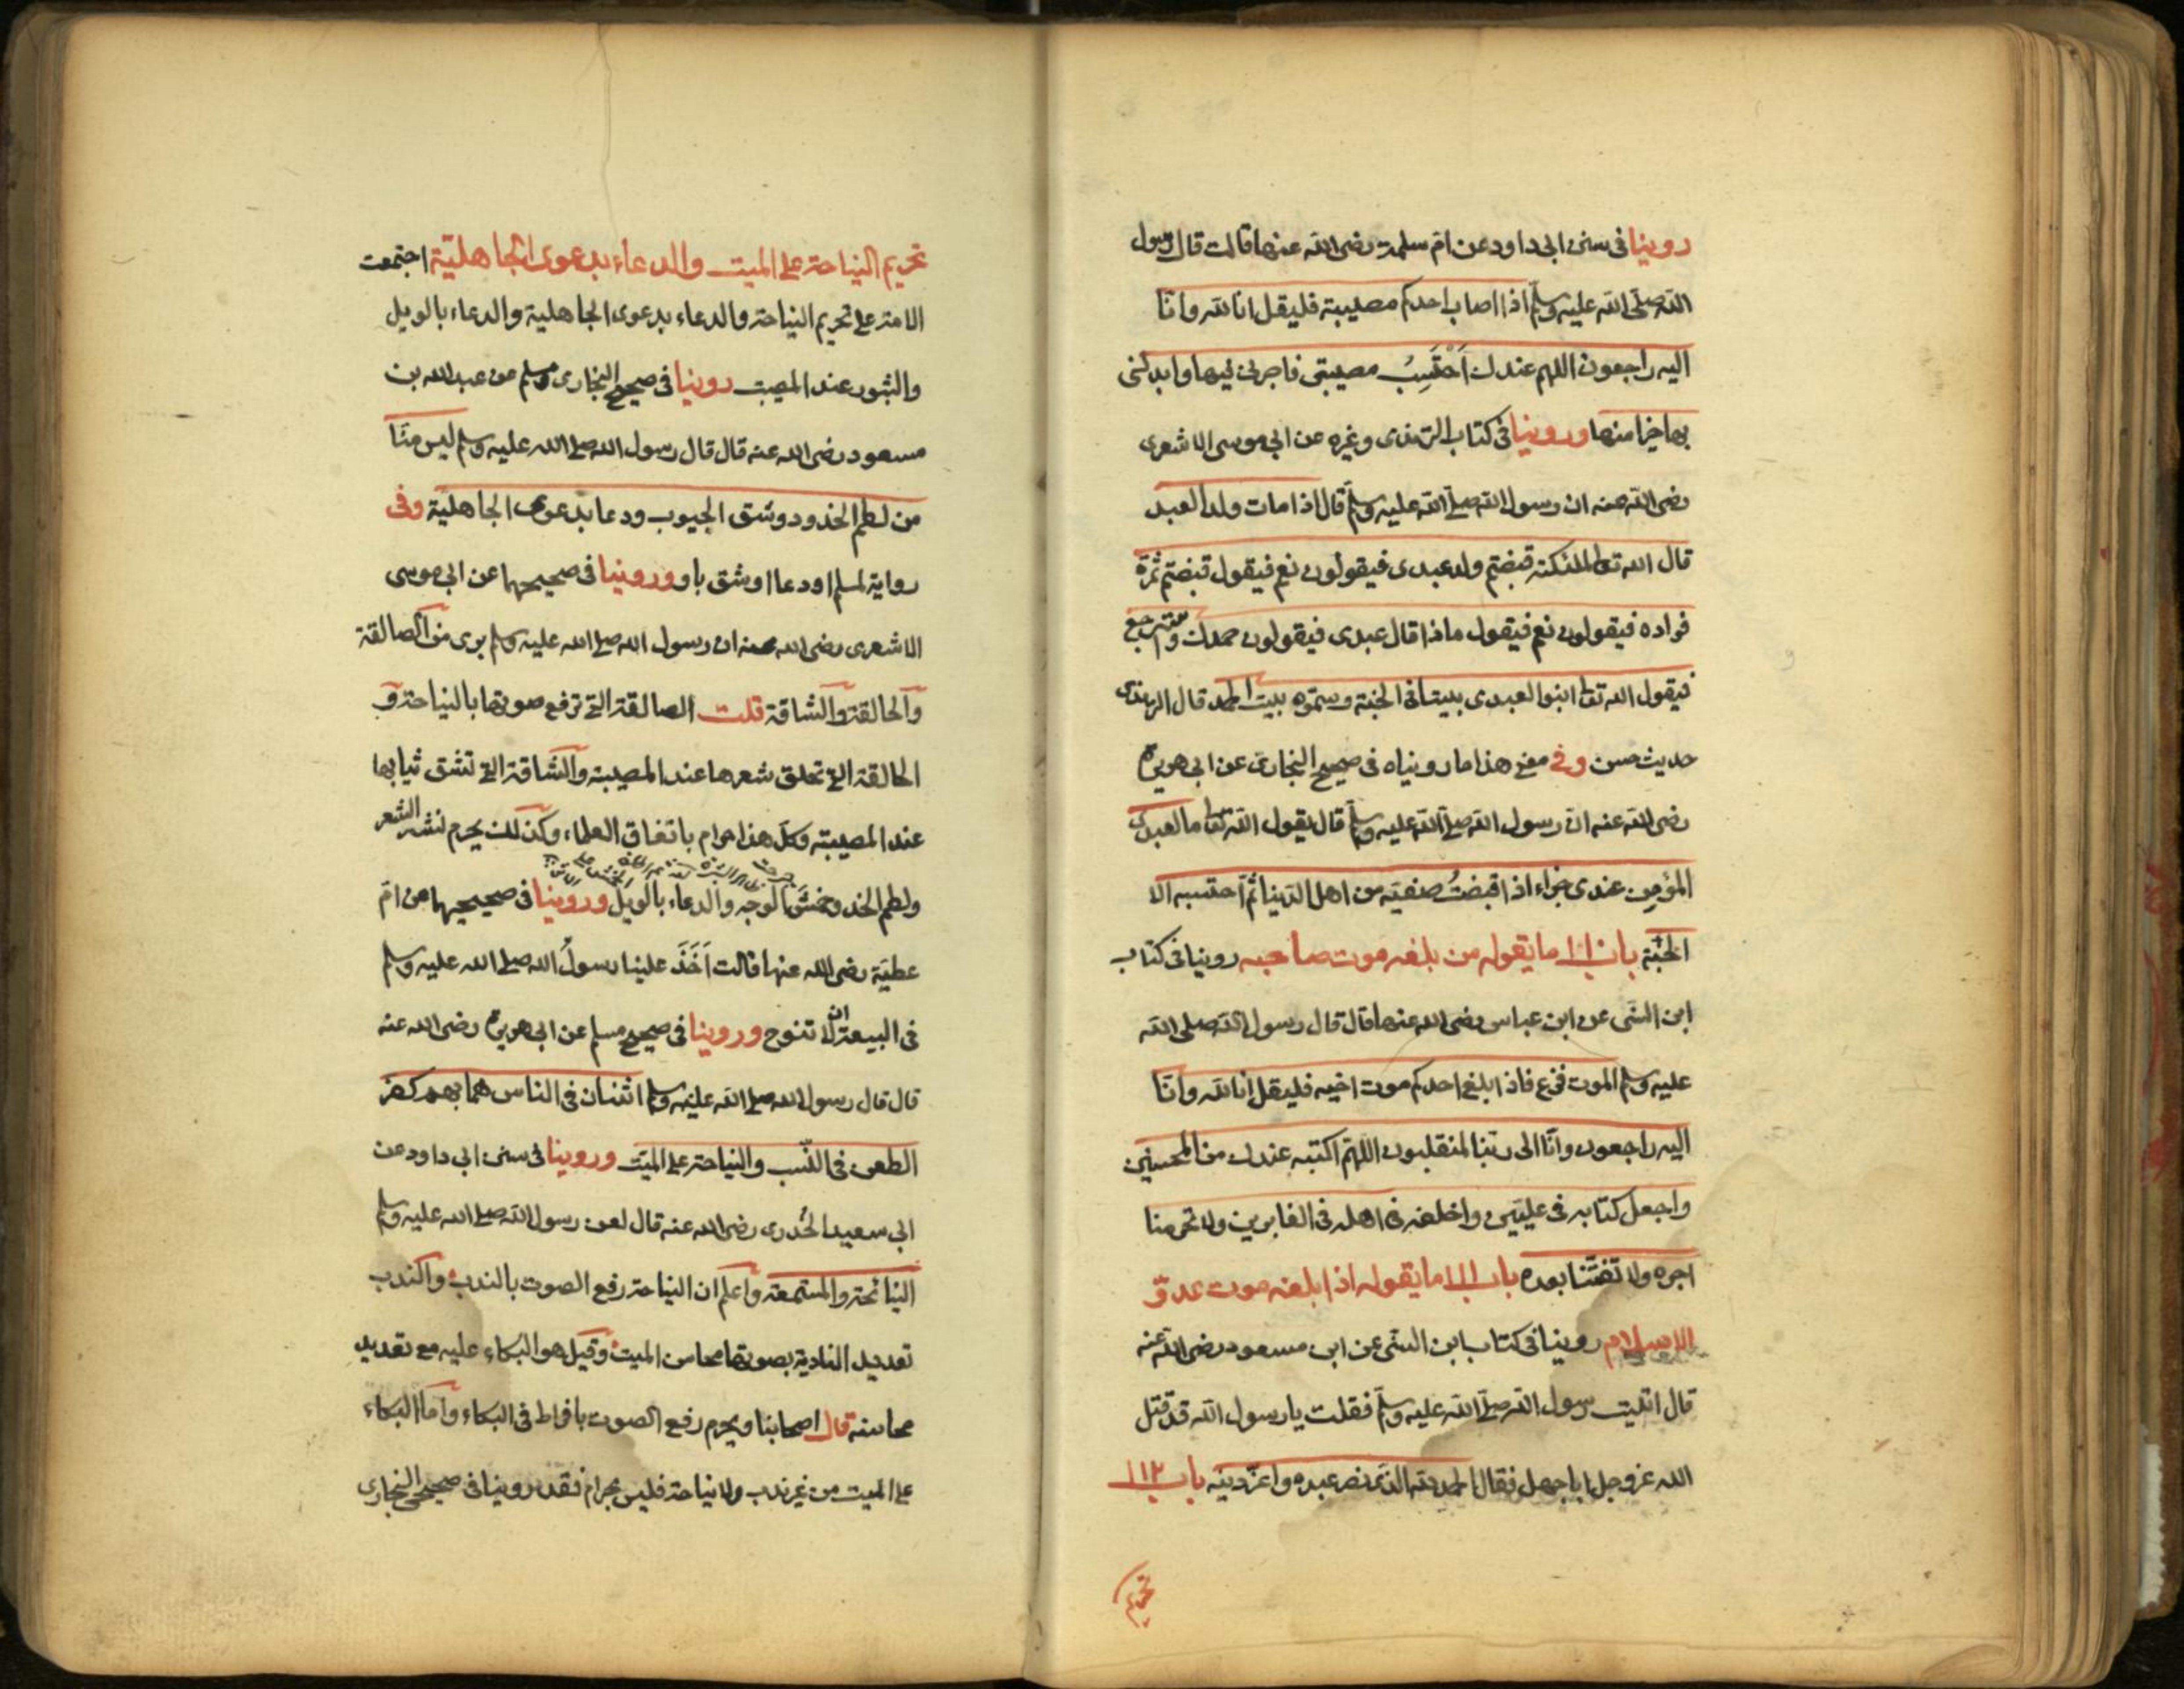 روينا في سنن ابي داود عن ام سلمة رضي الله عنها قالت قال رسول
الله صلى الله عليه وسلم اذا اصاب احدكم مصيبة فليقل انا لله وانا
اليه راجعون اللهم عندك اَحْتَسِبُ مصيبتي فاجرني فيها وابدلني
بها خيرا منها وروينا في كتاب الترمذي وغيره عن ابي موسى الاشعري
رضي الله عنه ان رسول الله صلى الله عليه وسلم قال اذا مات ولد العبد
قال الله تعالى لملئكته قبضتم ولد عبدي فيقولون نعم فيقول قبضتم ثمرة
فواده فيقولون نعم فيقول ماذا قال عبدي فيقولون حمدك واسترجع
فيقول الله تعا ابنوا لعبدي بيتا في الجنة وسمّوه بيت الحمد قال الترمذي
حديث حسن وفي معنى هذا ما رويناه في صحيح البخاري عن ابي هريرة
رضي الله عنه انّ رسول الله صلى الله عليه وسلم قال يقول الله تعا ما لعبدي
المؤمن عندي جزاء اذا قبضتُ صفيّه من اهل الدنيا ثمّ احتسبه الا
الجنّة باب ١١٠ ما يقوله من بلغه موت صاحبه روينا في كتاب
ابن السّني عن ابن عباس رضي الله عنهما قال قال رسول الله صلى الله
عليه وسلم الموت فزع فاذا بلغ احدكم موت اخيه فليقل انا لله وانا
اليه راجعون وانّا الى ربّنا لمنقلبون اللهمّ اكتبه عندك من المحسنين
واجعل كتابه في عليّين واخلفه في اهله في الغابرين ولا تحرمنا
اجره ولا تفتنّا بعده باب ١١١ ما يقوله اذا بلغه موت عدوّ
الاسلام روينا في كتاب ابن السّني عن ابن مسعود رضي الله عنه
قال اتيت رسول الله صلى الله عليه وسلم فقلت يا رسول الله قد قتل
الله عز وجل ابا جهل فقال الحمد لله الذي نصر عبده واعزّ دينه باب ١١٢
تحريم
تحريم النياحة على الميت والدعاء بدعوى الجاهليّة اجتمعت
الامة على تحريم النياحة والدعاء بدعوى الجاهلية والدعاء بالويل
والثبور عند المصيبت روينا في صحيح البخاري ومسلم عن عبد الله بن
مسعود رضي الله عنه قال قال رسول الله صلى الله عليه وسلم ليس منّا
من لطم الخدود وشق الجيوب ودعا بدعوى الجاهليّة وفي
رواية لمسلم او دعا او شق باو وروينا في صحيحهما عن ابي موسى
الاشعري رضي الله عنه ان رسول الله صلى الله عليه وسلم بري من الصالقة
والحالقة والشاقة قلت الصالقة التي ترفع صوتها بالنياحة و
الحالقة التي تحلق شعرها عند المصيبة والشاقة التي تشق ثيابها
عند المصيبة وكلّ هذا حرام باتفاق العلماء وكذلك يحرم نشر الشعر
ولطم الخد وخمش الوجه والدعاء بالويل وروينا في صحيحيهما عن امّ
عطيّة رضي الله عنها قالت اَخَذَ علينا رسولُ الله صلى الله عليه وسلم
في البيعة ان لا تنوح وروينا في صحيح مسلم عن ابي هريرة رضي الله عنه
قال قال رسول الله صلى الله عليه وسلم اثنتان في الناس هما بهم كفر
الطعن في النّسب والنياحة على الميّت وروينا في سنن ابي داود عن
ابي سعيد الخُدري رضي الله عنه قال لعن رسول الله صلى الله عليه وسلم
النائحة والمستمعة واعلم ان النياحة رفع الصوت بالندب والندب
تعديد النادبة بصوتها محاسن الميت وقيل هو البكاء عليه مع تعديد
محاسنه قال اصحابنا ويحرم رفع الصوت بافراط في البكاء واما البكاء
على الميت من غير ندب ولا نياحة فليس بحرام فقد روينا في صحيحي البخاري